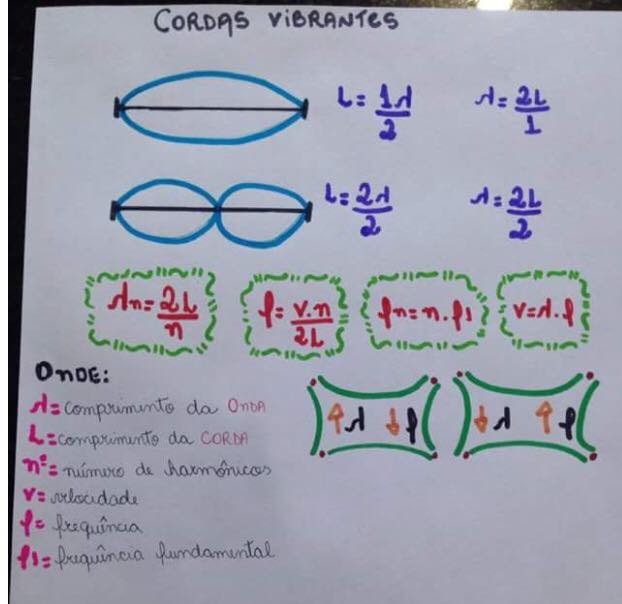 CORDAS VIBRANTES
L = 1λ/2 λ = 2L/1
L = 2λ/2 λ = 2L/2
λn = 2L/n f = v.n/2L fn = n.f1 v = λ.f
ONDE:
λ = comprimento da ONDA
↑λ ↓f ↓λ ↑f
L = comprimento da CORDA
nº = número de harmônicos
v = velocidade
f = frequência
f1 = frequência fundamental